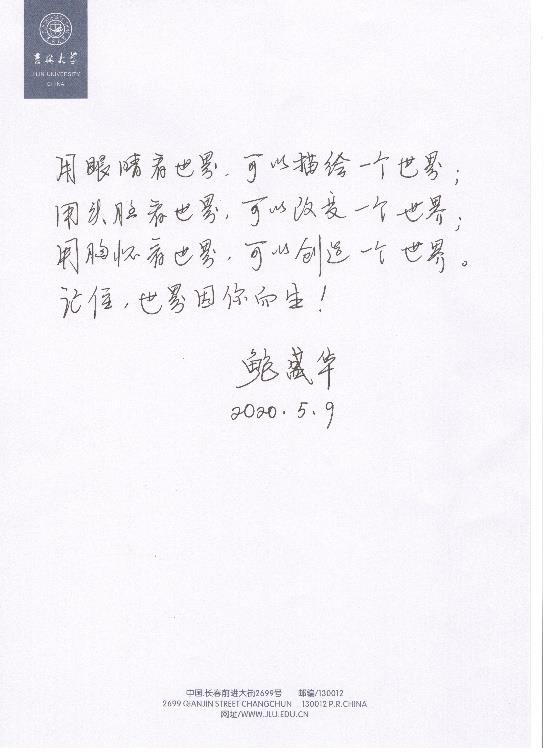 吉林大学
JILIN UNIVERSITY
CHINA
用眼睛看世界，可以描绘一个世界；
用头脑看世界，可以改变一个世界；
用胸怀看世界，可以创造一个世界。
记住，世界因你而生！
鲍盛华
2020.5.9
中国.长春前进大街2699号 邮编/130012
2699 QIANJIN STREET CHANGCHUN 130012 P.R.CHINA
网址/WWW.JLU.EDU.CN